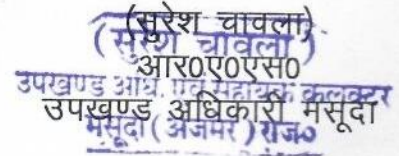 (सुरेश चावला)
(सुरेश चावला)
आर0ए0एस0
उपखण्ड अधि. एवं सहायक कलक्टर
उपखण्ड अधिकारी मसूदा
मसूदा (अजमेर) राज०